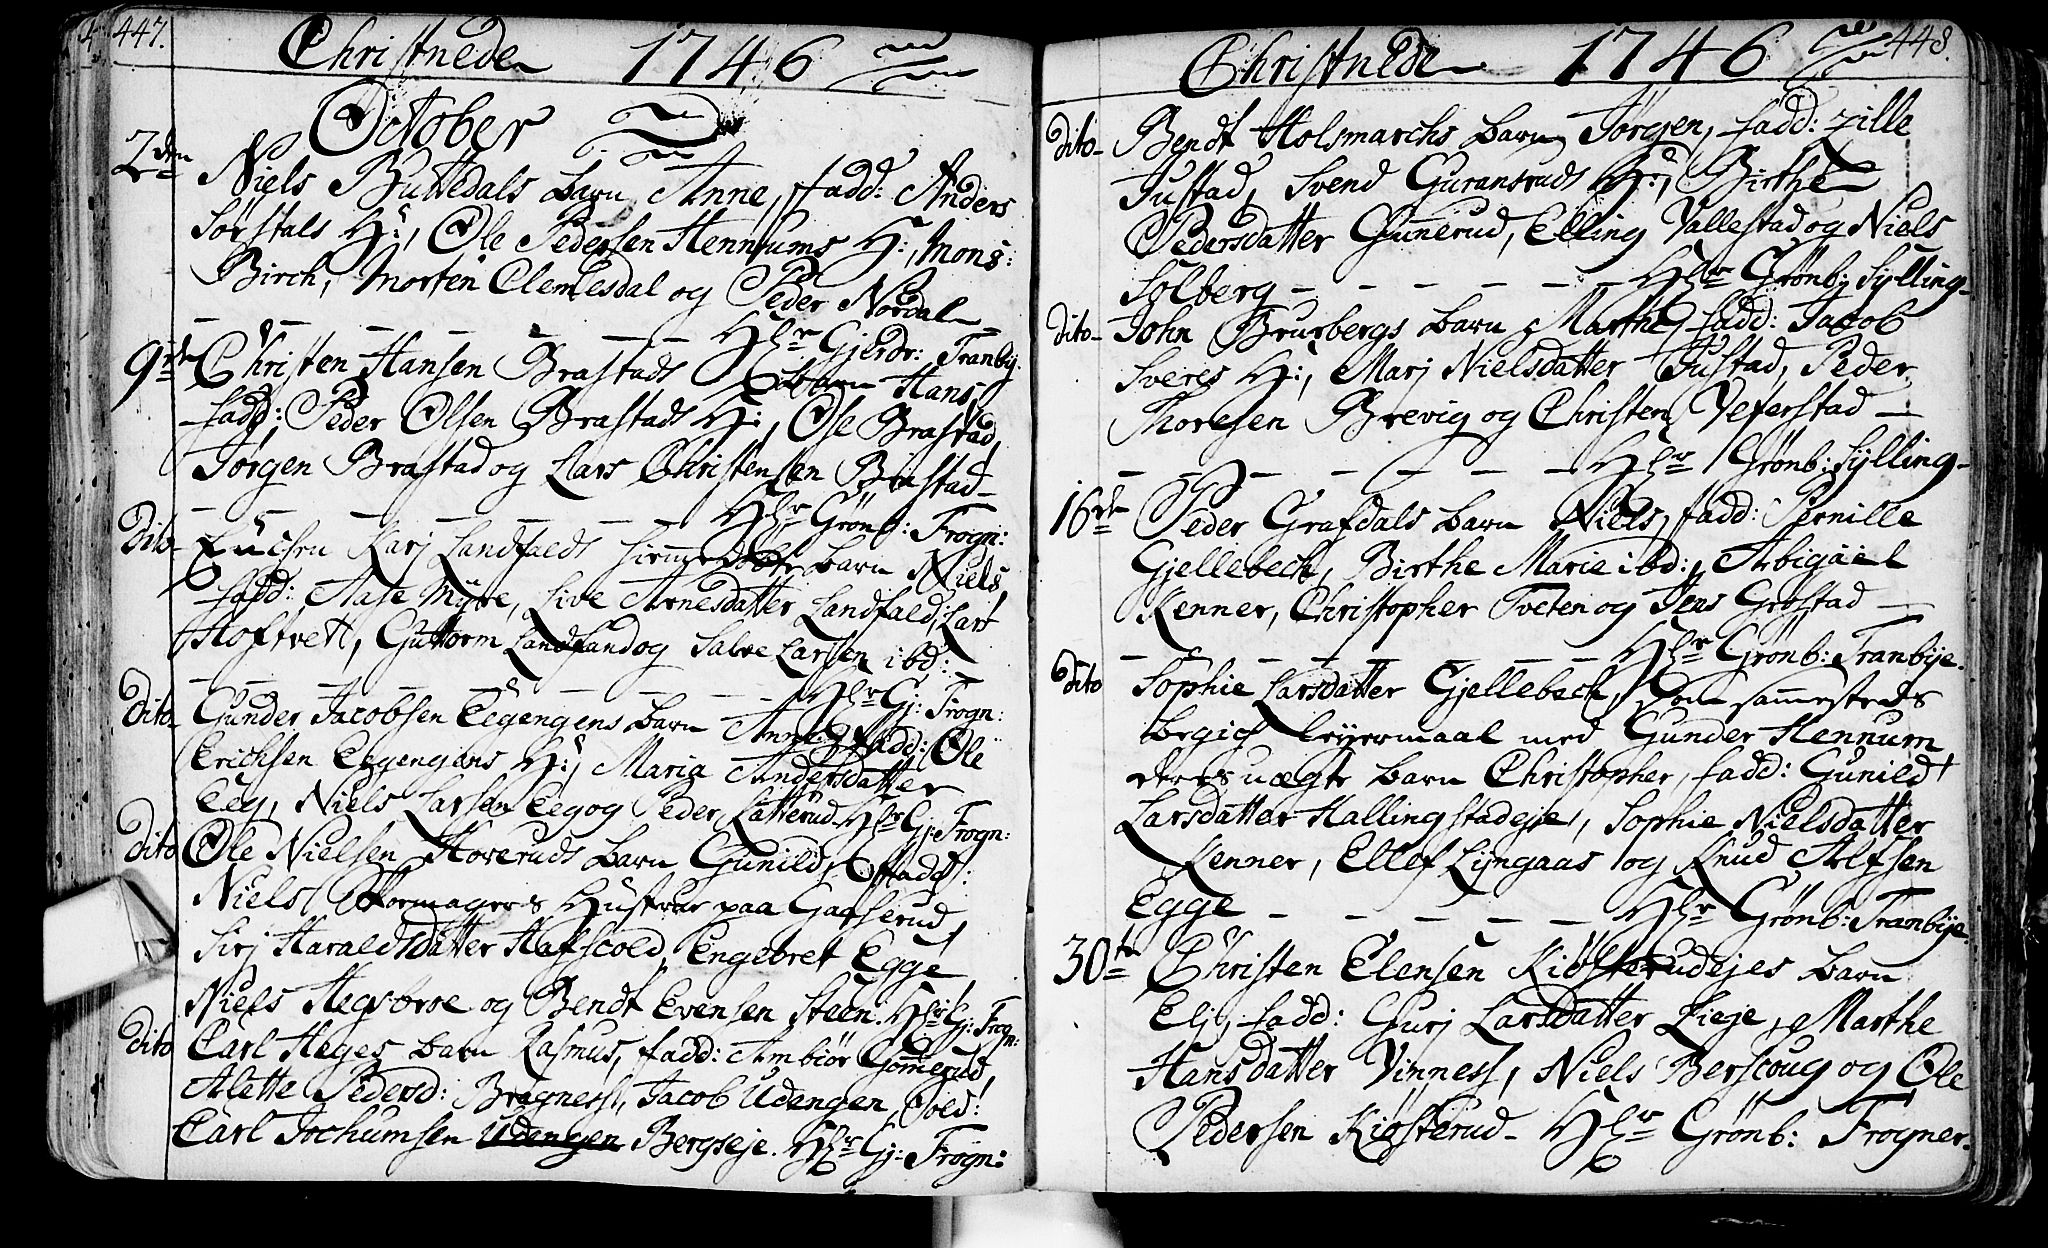 447.
Christnede 1746
October
2den Niels Buttedals barn Anne, fadd: Anders
Sørstals H:, Ole Pedersen Hennums H:, Mons:
Birch, Morten Clemlesdal og Peder Nordal
Hr Gjerdr: Tranby.
9de Christen Hansen Brastads barn Hans,
fadd: Peder Olsen Brastads H:, Ole Brastad,
Jørgen Brastad og Lars Christensen Brastad
Hr Grönb: Frogn:
Dito Karj Landfalds barn Niels,
fadd: Aase Myhre, Live Arnesdatter Landfald, Lars
Hoftvett, Guttorm Landfand og Salve Larsen ibd:
Hr Gj: Frogn:
Dito Gunder Jacobsen Eegengens barn Anne, fadd: Ole
Erichsen Eegengens H:, Maria Andersdatter
Eeg, Niels Larsen Eeg og Peder Latterud Hr Gj: Frogn:
Dito Ole Nielsen Hoveruds barn Gunild, fadd:
Niels Skormagers Hustrue paa Gaaserud,
Sirj Haraldsdatter Hafscold, Engebret Egge
Niels Hegsbroe og Bendt Evensen Steen. Hr Gj: Frogn:
Dito Carl Heges barn Rasmus, fadd: Ambiör Gommerud,
Alette Pedersd: Bragness, Jacob Udengen, Sold:
Carl Jochumsen Udengen Bergseje. Hr Gj: Frogn:
448.
Christnede 1746
Dito Bendt Holsmarchs barn Jørgen, fadd: Zille
Justad, Svend Guransruds H:, Birthe
Pedersdatter Gunnerud, Elling Vallestad og Niels
Solberg Hr Grønb: Sylling
Dito John Brusbergs barn Marthe, fadd: Jacob
Sveres H:, Marj Nielsdatter Justad, Peder
Thoresen Brevig og Christen Veferstad
Hr Grönb: Sylling
16de Peder Grafdals barn Niels, fadd: Pernille
Gjellebech, Birthe Marie ibd:, Abigäel
Kenner, Christopher Tveten og Jens Grøstad
Hr Grönb: Tranbye.
Dito Sophie Larsdatter Gjellebech, som sammesteds
begich leyermaal med Gunder Hennum
deres uægte barn Christopher, fadd: Gunild
Larsdatter Hallingstadeje, Sophie Nielsdatter
Kenner, Ellef Lyngaas og Knud Alfsen
Egge Hr Grönb: Tranbye.
30te Christen Elensen Kiøsterudejes barn
Elj, fadd: Gurj Larsdatter Lieje, Marthe
Hansdatter Vinness, Niels Berscoug og Ole
Pedersen Kiøsterud Hr Grönb: Frogner.